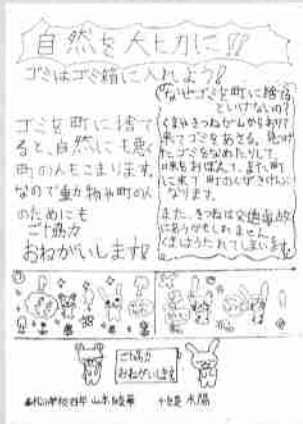 自然を大切に!!
ゴミはゴミ箱に入れよう!
ゴミを町に捨て
ると、自然にも悪く
町の人もこまります。
なので動物や町の人
のためにも
ご協力
おねがいします!
なぜゴミを町に捨てる
といけないの?
くまやきつねが山からおりて
来てゴミをあさる。見つけ
たゴミをなめたりして
味をおぼえて、また町
に来て町の人がきけんに
なります。
また、きつねは交通事故
にあうかもしれません
くまはうたれてしまいます。
ご協力
おねがいします